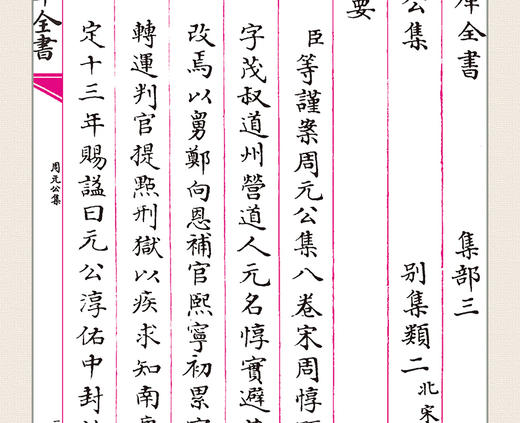 全書 集部三
公集 别集類二 北宋
要
臣等謹案周元公集八卷宋周惇
字茂叔道州營道人元名惇實避
改焉以舅鄭向恩補官熙寧初累
轉運判官提㸃刑獄以疾求知南
定十三年賜諡曰元公淳佑中封
全書
周元公集